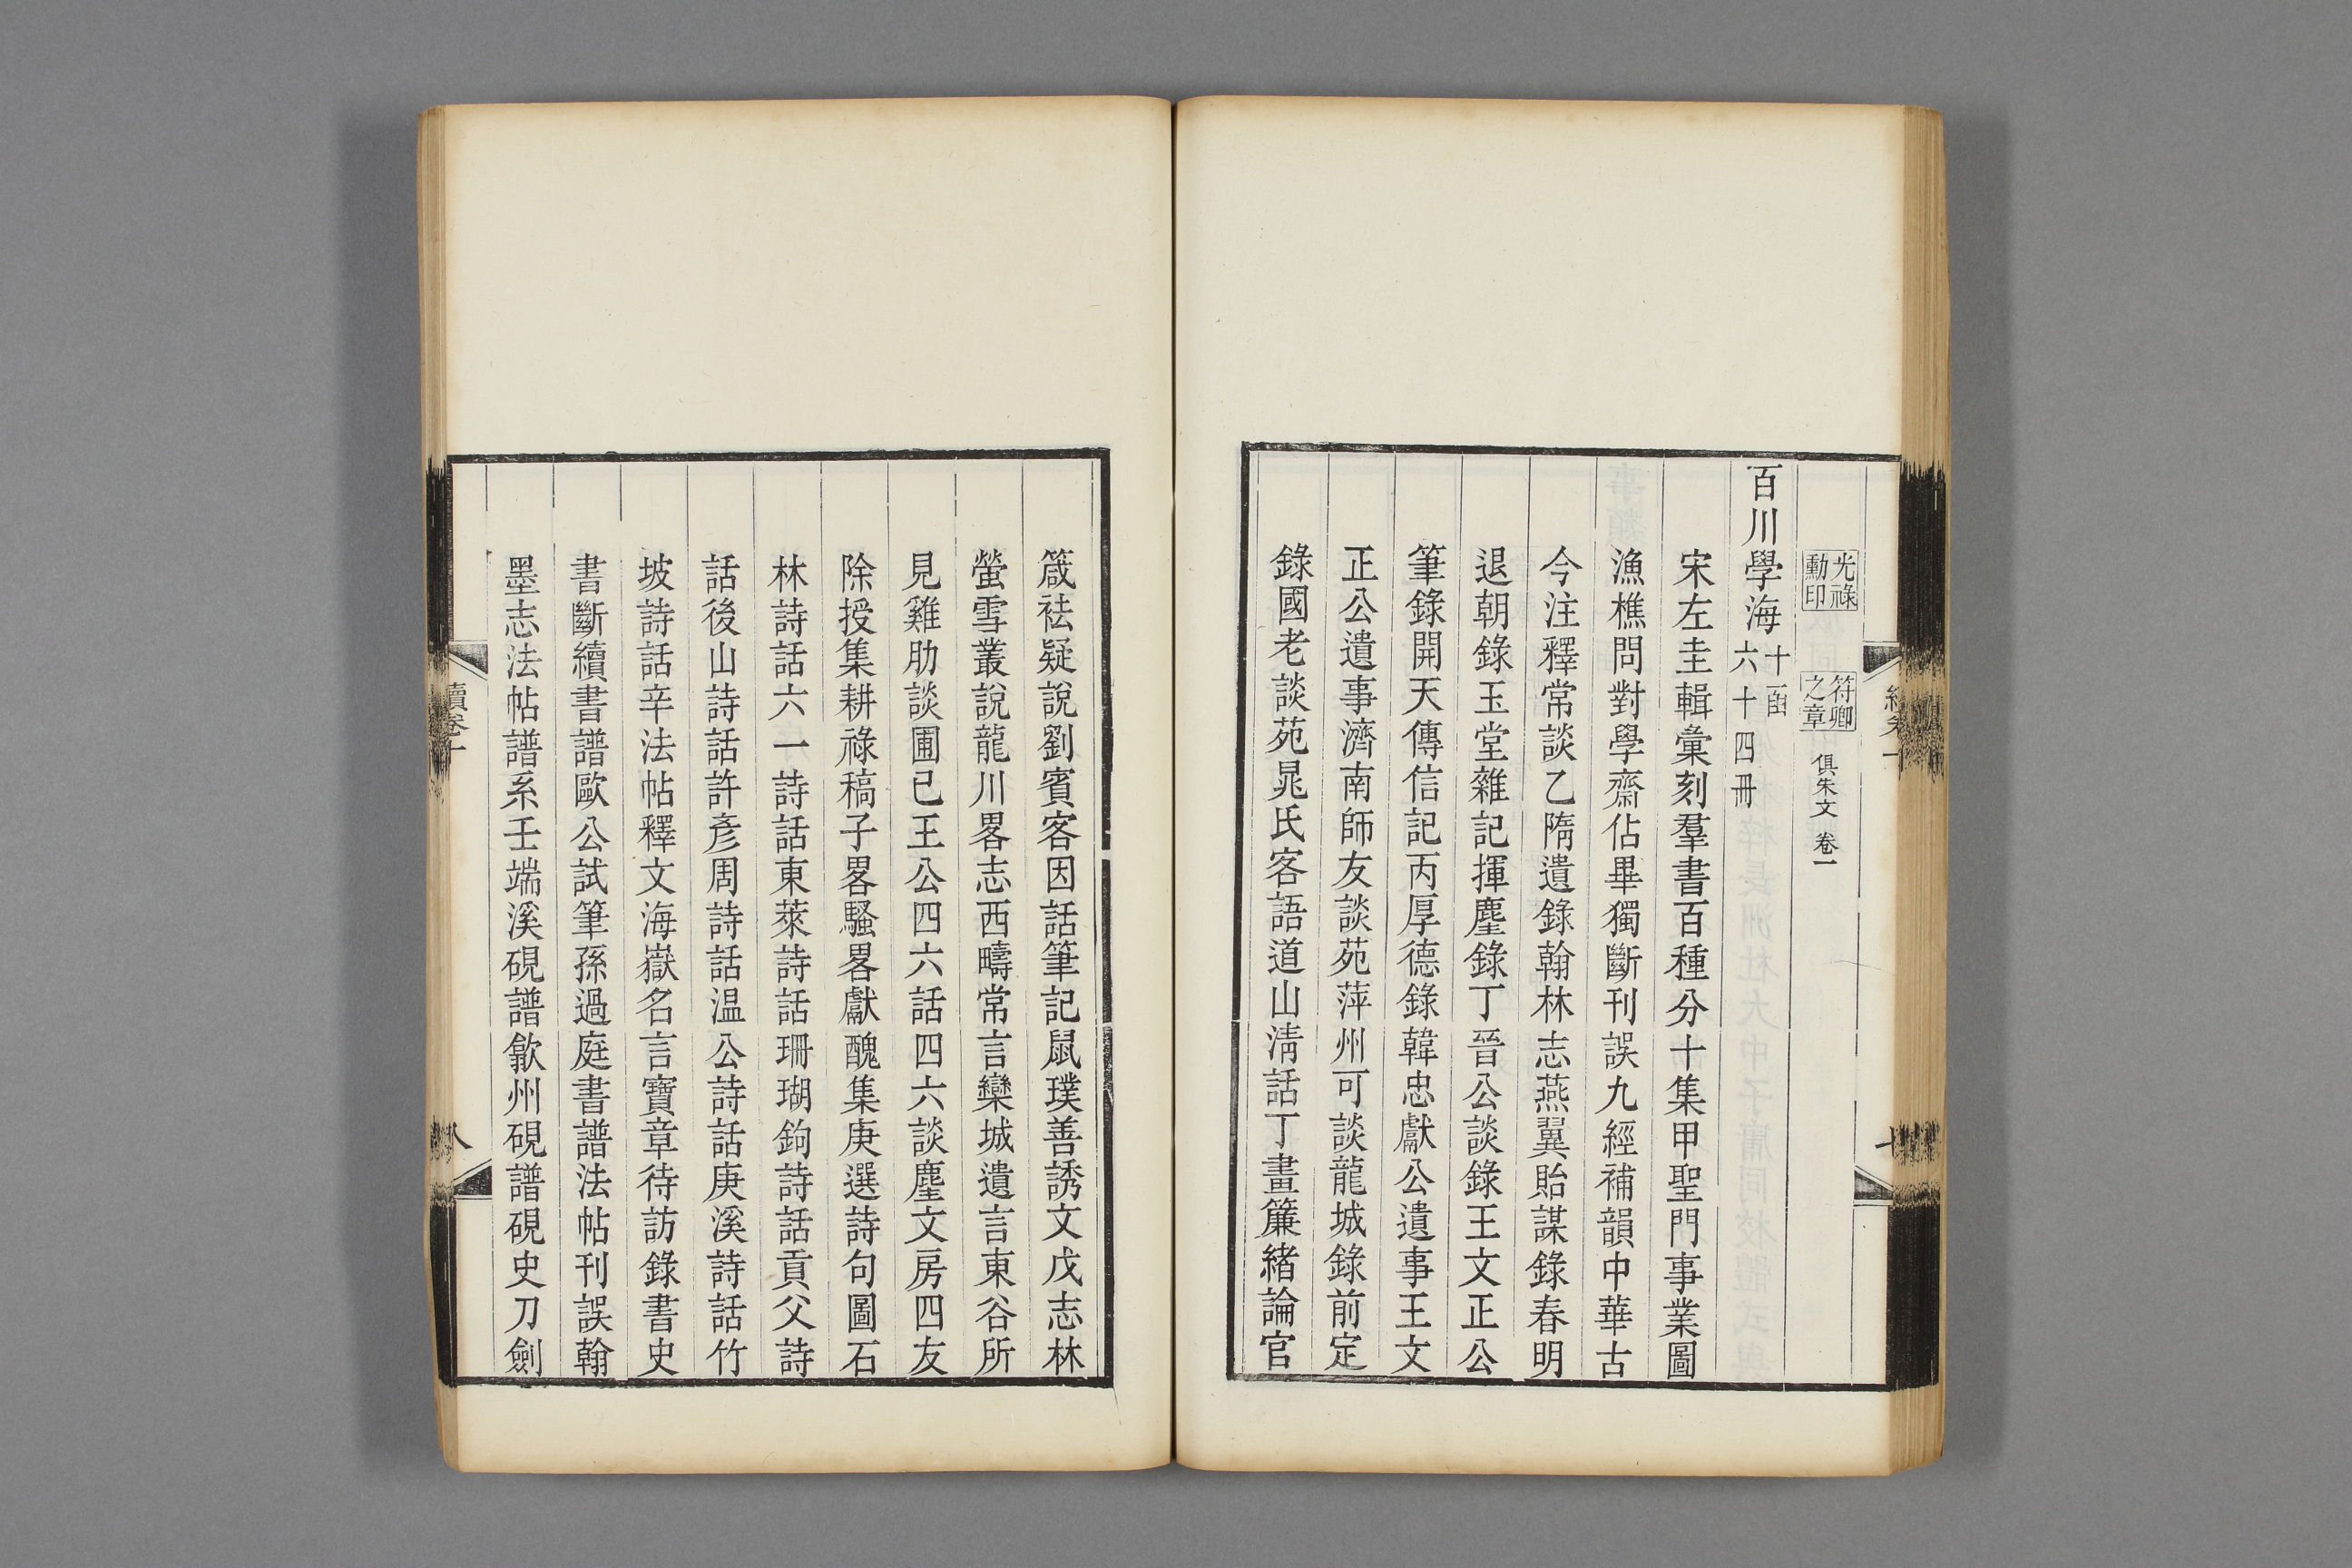 光祿勳印 符卿之章 俱朱文 卷一
百川學海 十函六十四冊
宋左圭輯彙刻羣書百種分十集甲聖門事業圖
漁樵問對學齋佔畢獨斷刊誤九經補韻中華古
今注釋常談乙隋遺錄翰林志燕翼貽謀錄春明
退朝錄玉堂雜記揮麈錄丁晉公談錄王文正公
筆錄開天傳信記丙厚德錄韓忠獻公遺事王文
正公遺事濟南師友談苑萍州可談龍城錄前定
錄國老談苑晁氏客語道山淸話丁畫簾緒論官
箴袪疑說劉賓客因話筆記鼠璞善誘文戊志林
螢雪叢說龍川畧志西疇常言欒城遺言東谷所
見雞肋談圃已王公四六話四六談麈文房四友
除授集耕祿稿子畧騷畧獻醜集庚選詩句圖石
林詩話六一詩話東萊詩話珊瑚鉤詩話貢父詩
話後山詩話許彥周詩話温公詩話庚溪詩話竹
坡詩話辛法帖釋文海嶽名言寶章待訪錄書史
書斷續書譜歐公試筆孫過庭書譜法帖刊誤翰
墨志法帖譜系壬端溪硯譜歙州硯譜硯史刀劍
續卷十
八